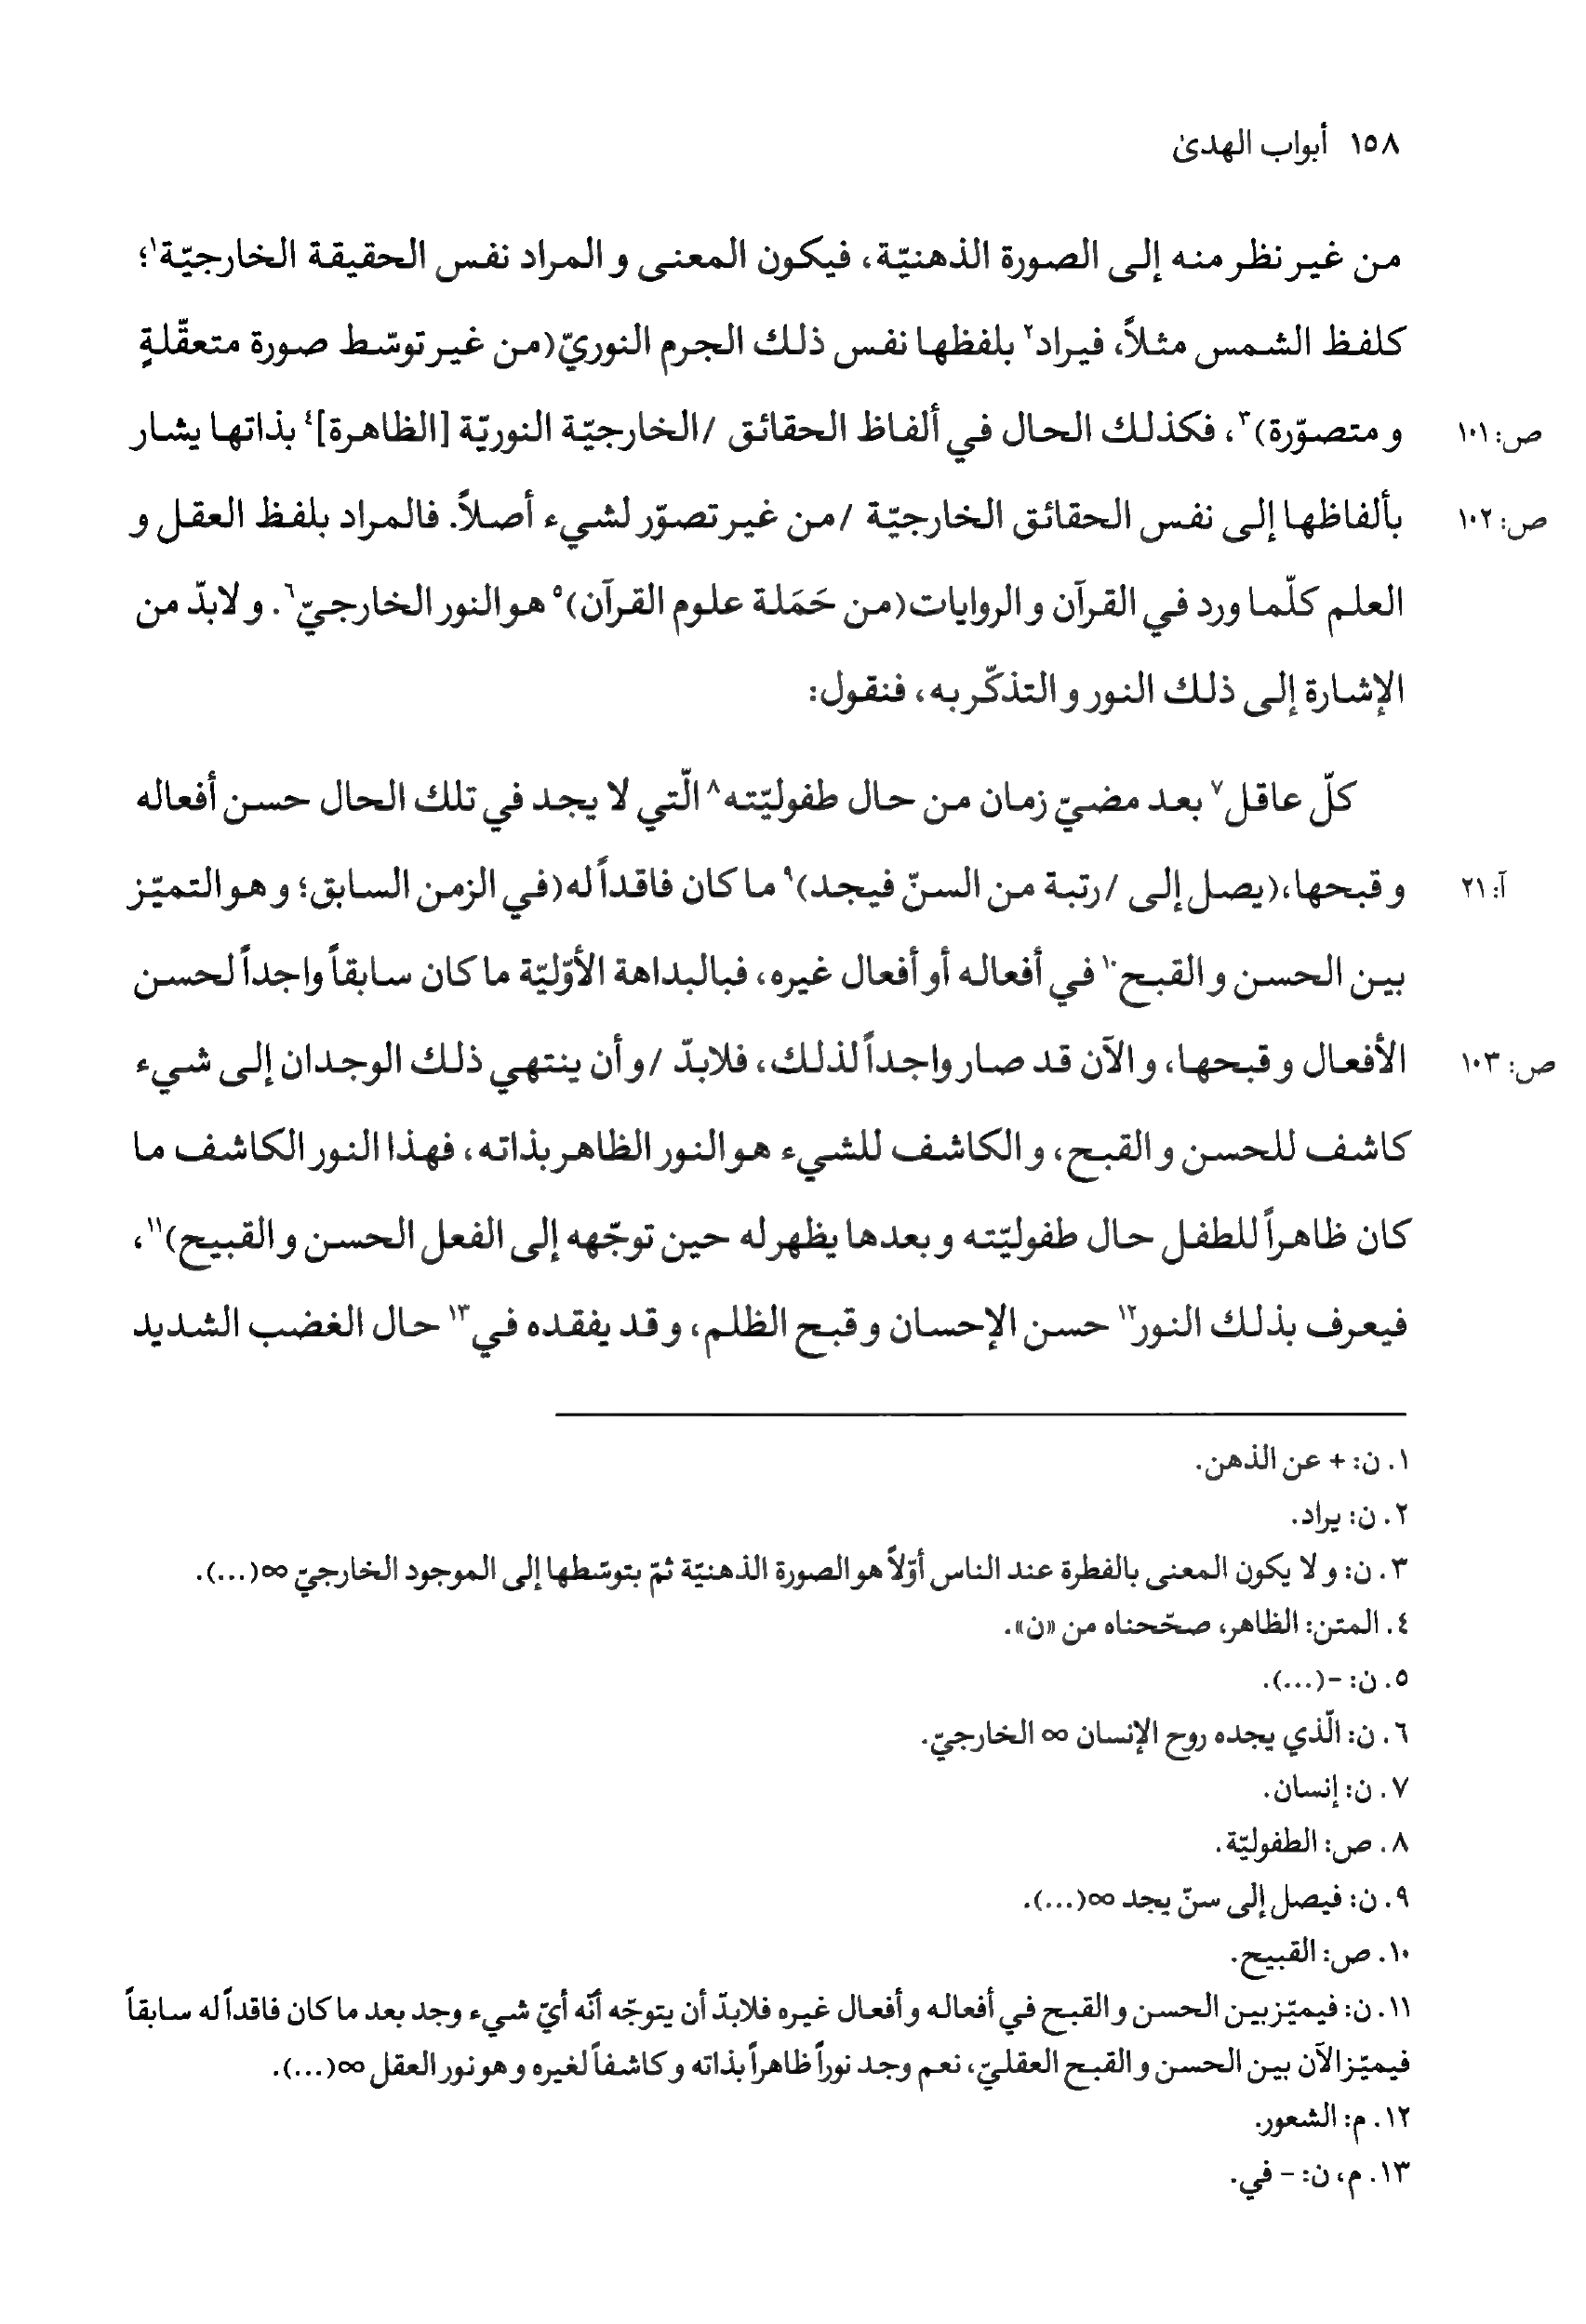 ١٥٨ أبواب الهدىٰ
من غير نظر منه إلى الصورة الذهنيّة، فيكون المعنى و المراد نفس الحقيقة الخارجيّة١؛
كلفظ الشمس مثلاً، فيراد٢ بلفظها نفس ذلك الجرم النوريّ (من غير توسّط صورة متعقّلةٍ
و متصوّرة)٣، فكذلك الحال في ألفاظ الحقائق /الخارجيّة النوريّة [الظاهرة]٤ بذاتها يشار
ص: ١٠١
بألفاظها إلى نفس الحقائق الخارجيّة /من غير تصوّر لشيء أصلاً. فالمراد بلفظ العقل و
ص: ١٠٢
العلم كلّما ورد في القرآن و الروايات (من حَمَلة علوم القرآن)٥ هو النور الخارجيّ٦. و لابدّ من
الإشارة إلى ذلك النور و التذكّر به، فنقول:
كلّ عاقل٧ بعد مضيّ زمان من حال طفوليّته٨ الّتي لا يجد في تلك الحال حسن أفعاله
و قبحها، (يصل إلى /رتبة من السنّ فيجد)٩ ما كان فاقداً له (في الزمن السابق؛ و هو التميّز
آ: ٢١
بين الحسن و القبح١٠ في أفعاله أو أفعال غيره، فبالبداهة الأوّليّة ما كان سابقاً واجداً لحسن
الأفعال و قبحها، و الآن قد صار واجداً لذلك، فلابدّ /و أن ينتهي ذلك الوجدان إلى شيء
ص: ١٠٣
كاشف للحسن و القبح، و الكاشف للشيء هو النور الظاهر بذاته، فهذا النور الكاشف ما
كان ظاهراً للطفل حال طفوليّته و بعدها يظهر له حين توجّهه إلى الفعل الحسن و القبيح)١١،
فيعرف بذلك النور١٢ حسن الإحسان و قبح الظلم، و قد يفقده في١٣ حال الغضب الشديد
١. ن: + عن الذهن.
٢. ن: يراد.
٣. ن: و لا يكون المعنى بالفطرة عند الناس أوّلاً هو الصورة الذهنيّة ثمّ بتوسّطها إلى الموجود الخارجيّ ∞(...).
٤. المتن: الظاهر، صحّحناه من «ن».
٥. ن: -(...).
٦. ن: الّذي يجده روح الإنسان ∞ الخارجيّ.
٧. ن: إنسان.
٨. ص: الطفوليّة.
٩. ن: فيصل إلى سنّ يجد ∞(...).
١٠. ص: القبيح.
١١. ن: فيميّز بين الحسن و القبح في أفعاله و أفعال غيره فلابدّ أن يتوجّه أنّه أيّ شيء وجد بعد ما كان فاقداً له سابقاً
فيميّز الآن بين الحسن و القبح العقليّ، نعم وجد نوراً ظاهراً بذاته و كاشفاً لغيره و هو نور العقل ∞(...).
١٢. م: الشعور.
١٣. م، ن: - في.